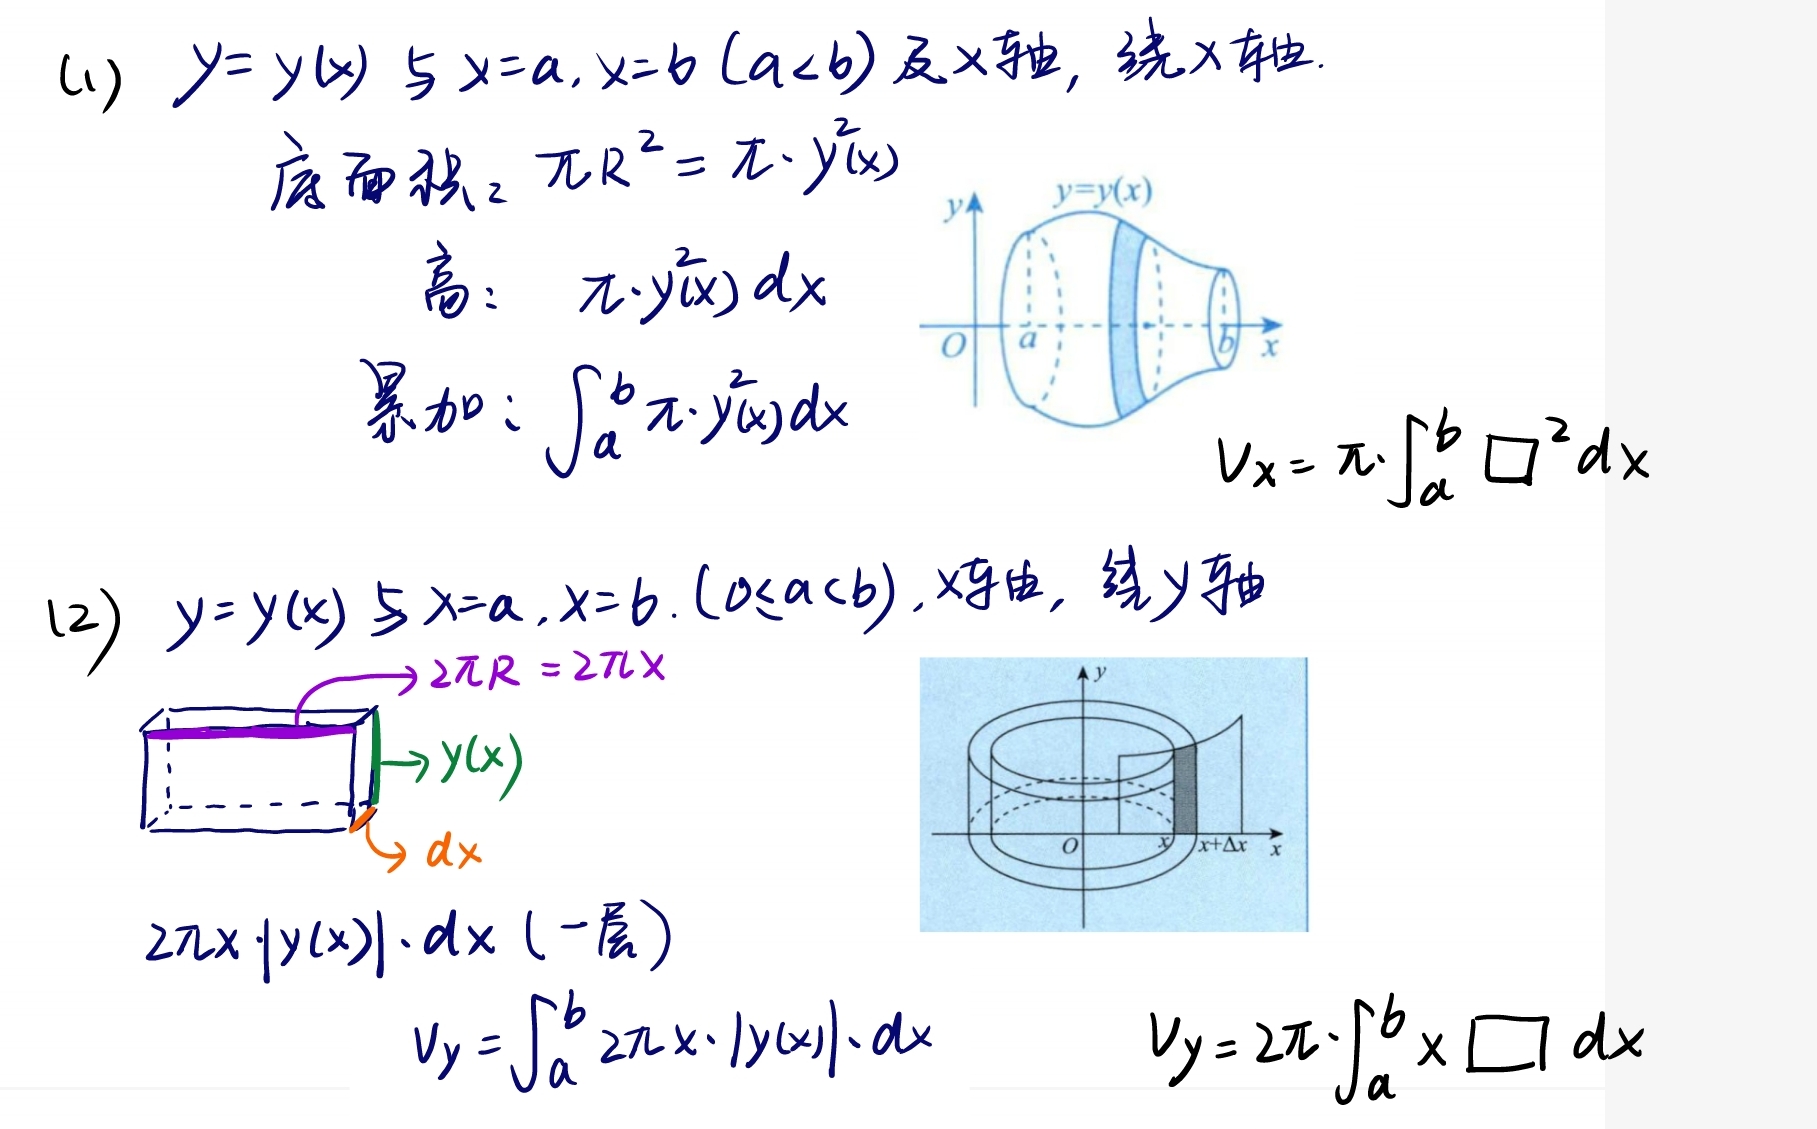 (1) y=y(x) 与 x=a, x=b (a<b) 及x轴, 绕x轴.
底面积: πR² = π·y²(x)
高: π·y²(x) dx
累加: ∫ₐᵇ π·y²(x)dx
y y=y(x)
O a b x
Vx = π·∫ₐᵇ □² dx
(2) y=y(x) 与 x=a, x=b. (0≤a<b), x轴, 绕y轴
2πR = 2πx
y(x)
dx
y
O x x+Δx x
2πx·|y(x)|·dx (一层)
Vy = ∫ₐᵇ 2πx·|y(x)|·dx
Vy = 2π·∫ₐᵇ x □ dx